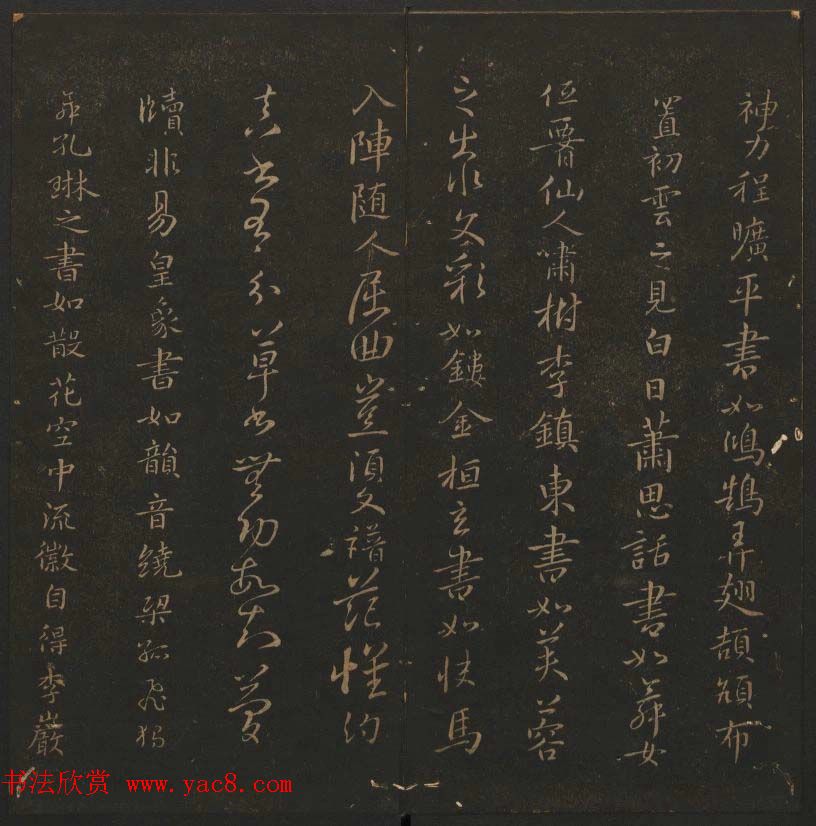 神力程曠平書如鴻鵠弄翅頡頏布
置初雲之見白日蕭思話書如舞女
低腰仙人嘯樹李鎮東書如芙蓉
之出水文彩如鏤金桓玄書如快馬
入陣随人屈曲豈須文譜范懷約
真書有分草書無功故知簡
牘非易皇象書如韻音繞梁孤飛獨
舞孔琳之書如散花空中流徽自得李巖
书法欣赏 www.yac8.com